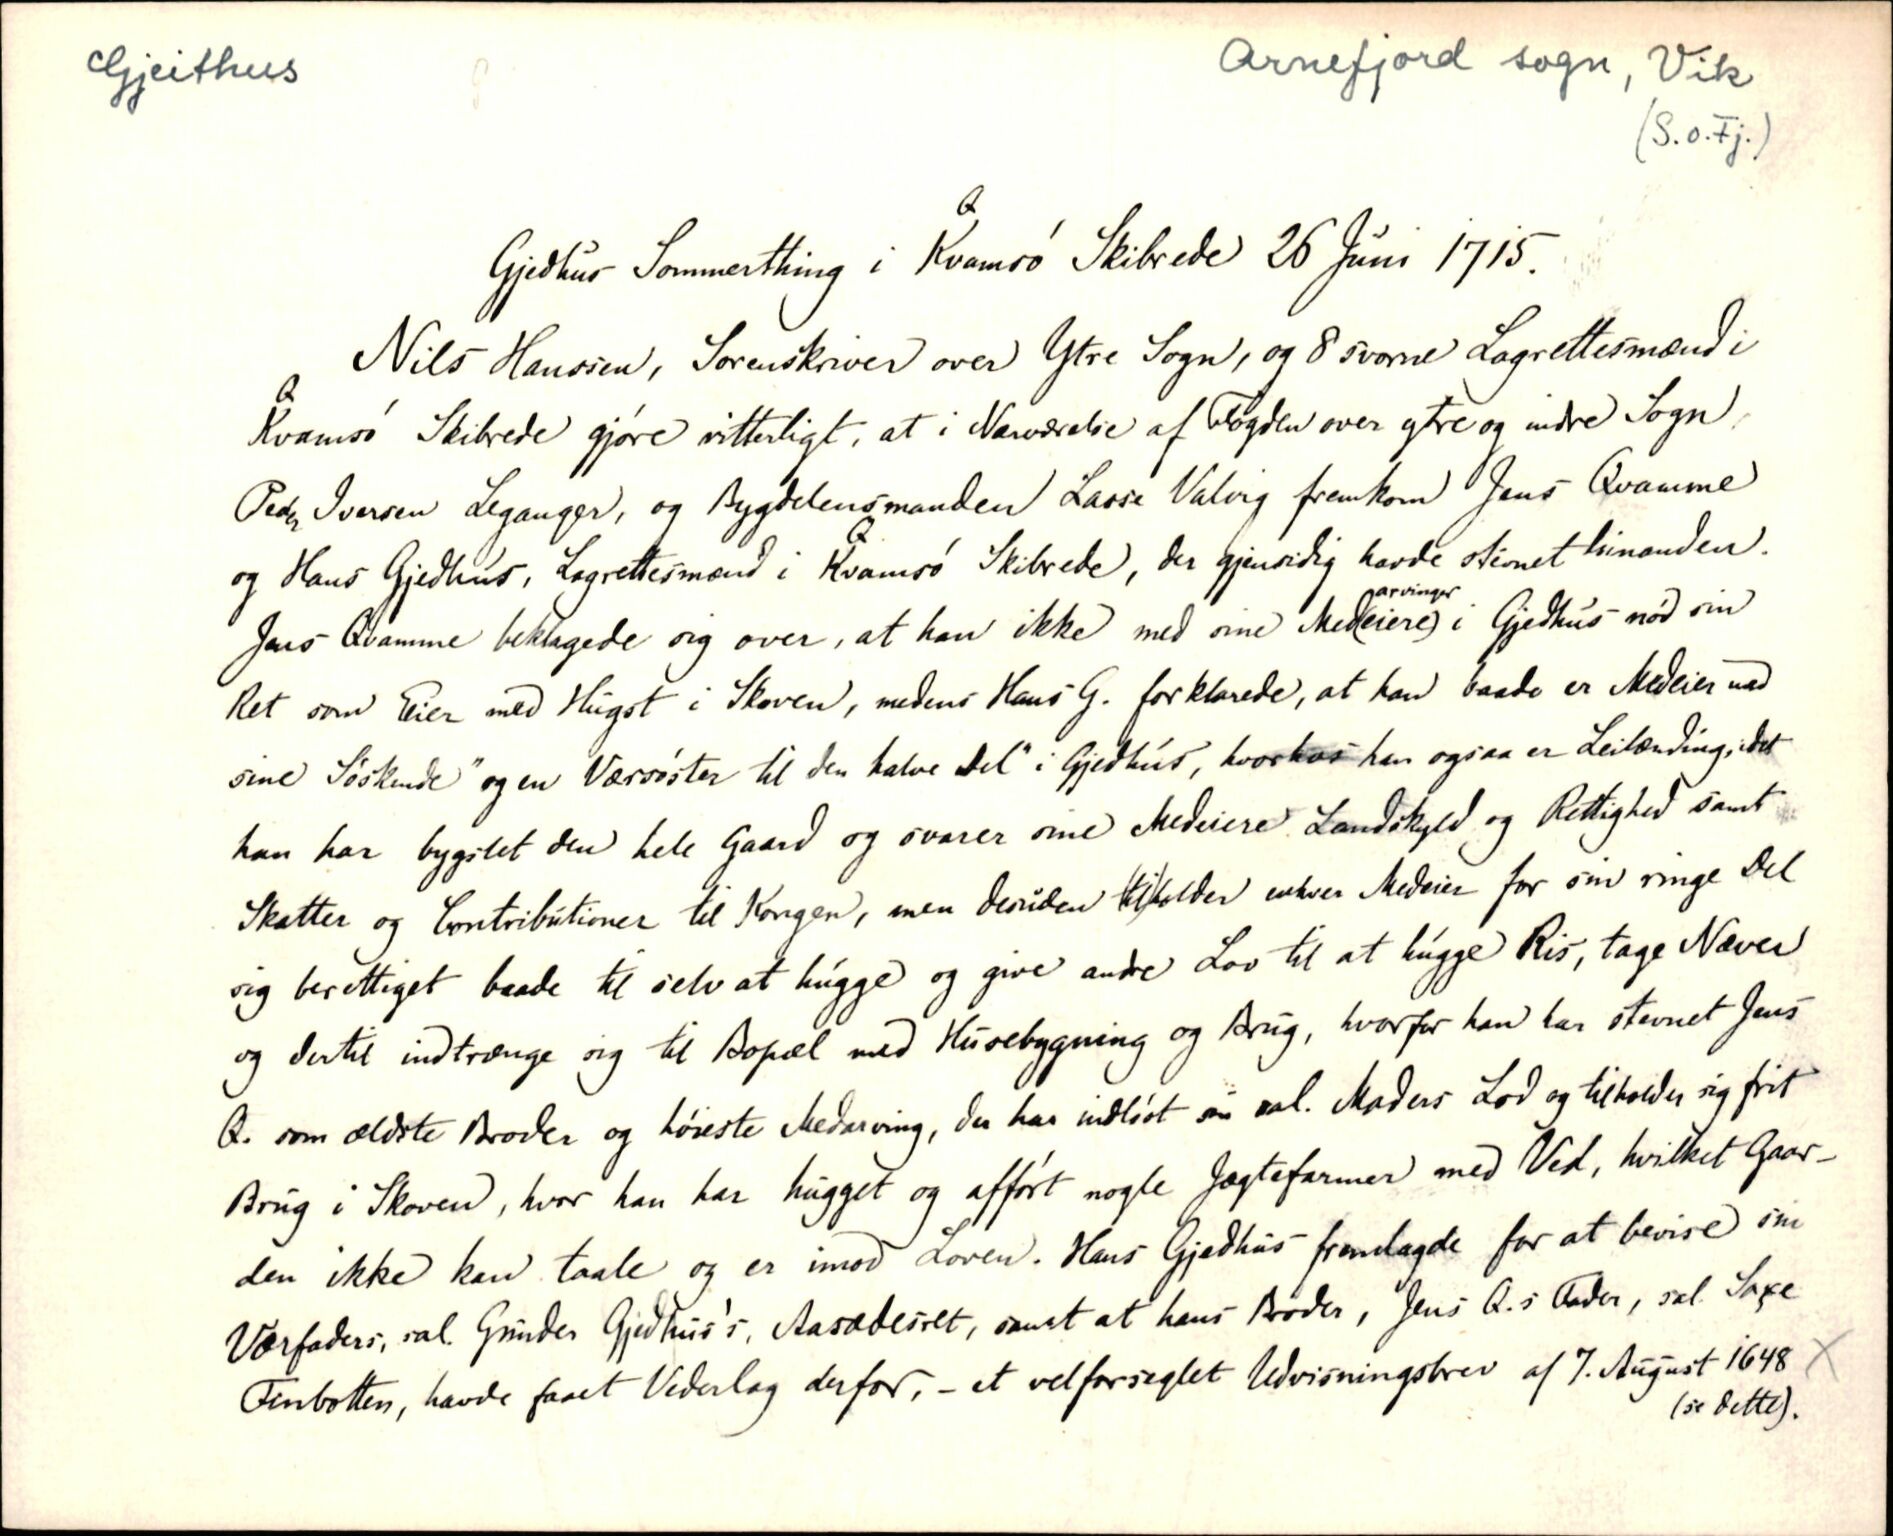 Gjeithus
Arnefjord sogn, Vik
(S.o.Fj.)
Q
Gjedhus Sommerthing i Kvamsö Skibrede 26 Juni 1715.
Nils Hanssen, Sorenskriver over Ytre Sogn, og 8 svorne Lagrettesmænd i
Q
Kvamsö Skibrede gjöre vitterligt, at i Nærværelse af Fogden over ytre og indre Sogn,
Peder Iversen Leganger, og Bygdelensmanden Lasse Valvig fremkom Jens Qvamme
Q
og Hans Gjedhus, Lagrettesmænd i Kvamsö Skibrede, der gjensidig havde stevnet hinanden.
arvinger
Jens Qvamme beklagede sig over, at han ikke med sine Med(eiere) i Gjedhus nöd sin
Ret som Eier med Hugst i Skoven, medens Hans G. forklarede, at han baade er Medeier med
sine Söskende "og en Værsöster til den halve Del" i Gjedhus, hvorhos han ogsaa er Leilænding, idet
han har bygslet den hele Gaard og svarer sine Medeiere Landskyld og Rettighed samt
Skatter og Contributioner til Kongen, men desuden tilholder enhver Medeier for sin ringe Del
sig berettiget baade til selv at hugge og give andre Lov til at hugge Ris, tage Næver
og dertil indtrænge sig til Bopæl med Husebygning og Brug, hvorfor han har stevnet Jens
Q. som ældste Broder og höieste Medarving, der har indlöst sin sal. Moders Lod og tilholder sig frit
Brug i Skoven, hvor han har hugget og afført nogle Jægtefarmer med Ved, hvilket Gaar-
den ikke kan taale og er imod Loven. Hans Gjedhus fremlagde for at bevise sin
Værfaders, sal. Gunder Gjedhus's, Aasædesret, samt at hans Broder, Jens Q.s Fader, sal. Saxe
Finbotten, havde faaet Vederlag derfor, - et velforseglet Udvisningsbrev af 7. August 1648 X
(se dette).